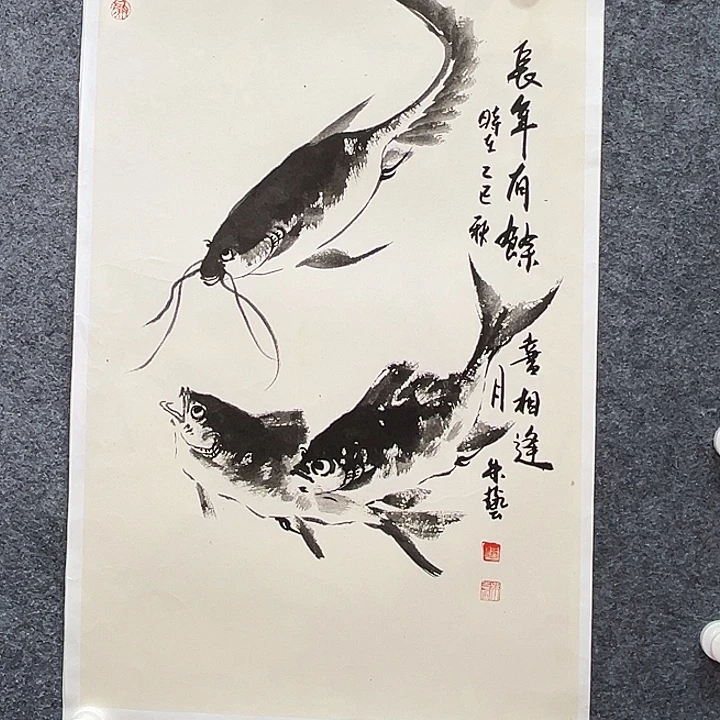 長年有餘 喜相逢
時在乙巳秋月
朱藝